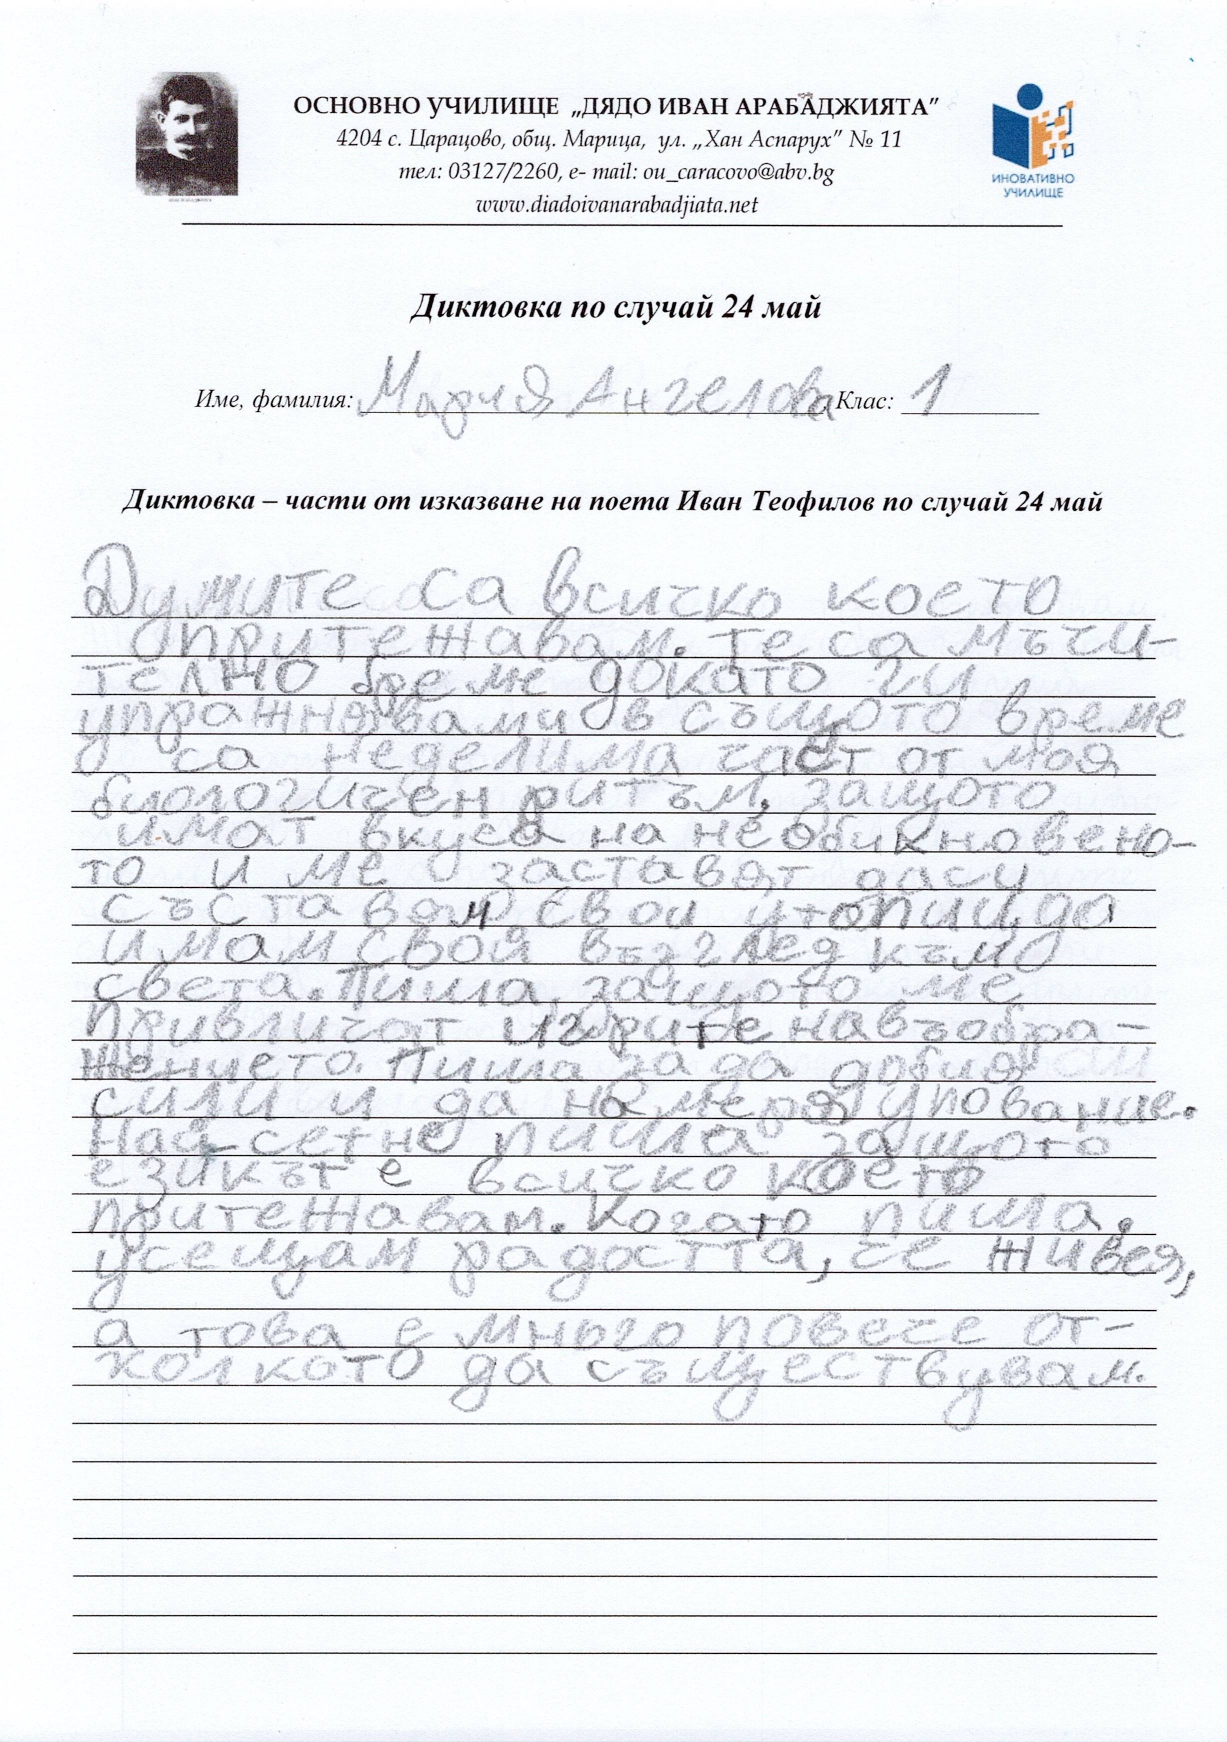 ОСНОВНО УЧИЛИЩЕ „ДЯДО ИВАН АРАБАДЖИЯТА”
4204 с. Царацово, общ. Марица, ул. „Хан Аспарух” № 11
тел: 03127/2260, е- mail: ou_caracovo@abv.bg
www.diadoivanarabadjiata.net
ИНОВАТИВНО
УЧИЛИЩЕ
Диктовка по случай 24 май
Име, фамилия: Мария Ангелова, Клас: 1
Диктовка – части от изказване на поета Иван Теофилов по случай 24 май
Думите са всичко което
притежавам. те са мъчи-
телно бреме докато ги
упражнявами в същото време
са неделима част от моя
биологичен ритъм, защото
имат вкуса на необикновено-
то и ме заставят даси
съставям свои утопии, да
имам свой възглед към
света. Пиша, защото ме
привличат игрите навъобра-
жението. Пиша за да добия
сили и да намеря упование.
Най-сетне пиша защото
езикът е всичко което
притежавам. Когато пиша,
усещам радостта, че живея,
а това е много повече от-
колкото да съществувам.